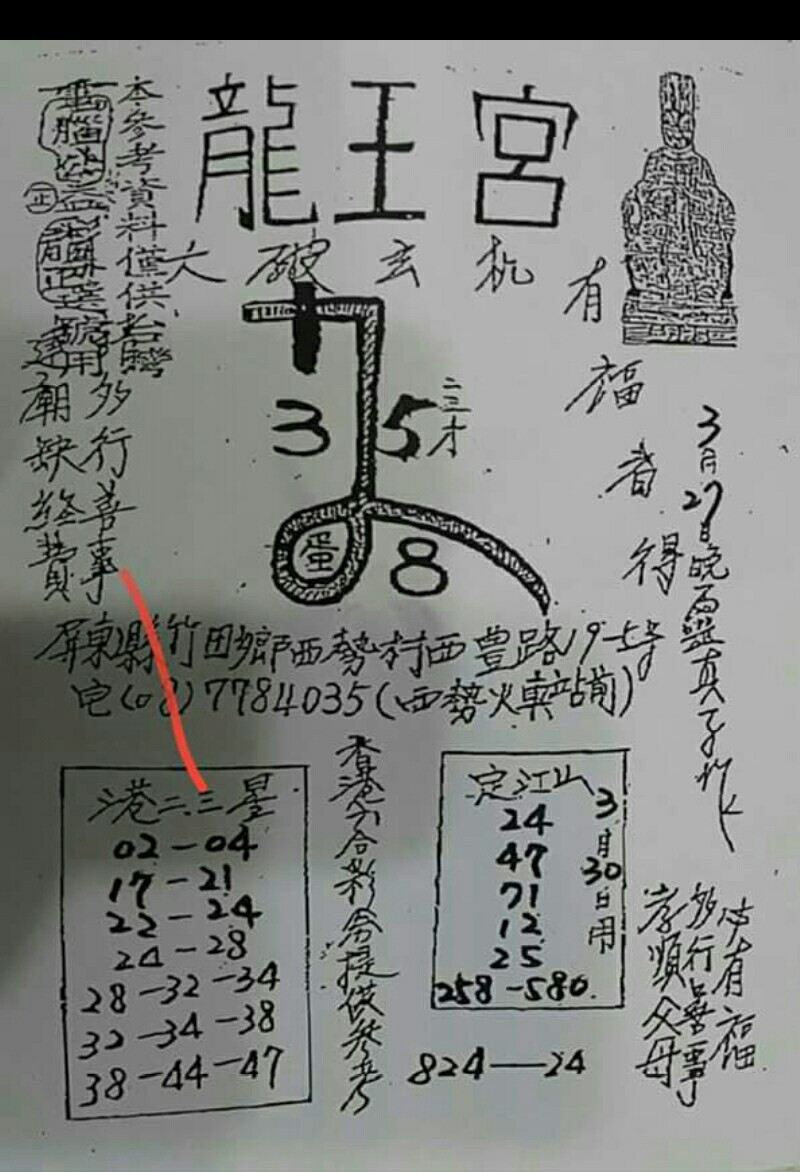 龍王宮
大破玄机
本參考資料僅供台灣
電腦公益彩選號用
正
多行善事
建廟缺經費
有福者得
3月27日晚
3 5
二三才
蛋 8
屏東縣竹田鄉西勢村西豊路19-5号
宅(08)7784035(西勢火車站前)
港二三星
02-04
17-21
22-24
24-28
28-32-34
32-34-38
38-44-47
香港六合彩仝提供參考
定江山
3月30日用
24
47
71
12
25
258-580.
824——24
有福
多行善事
孝順父母